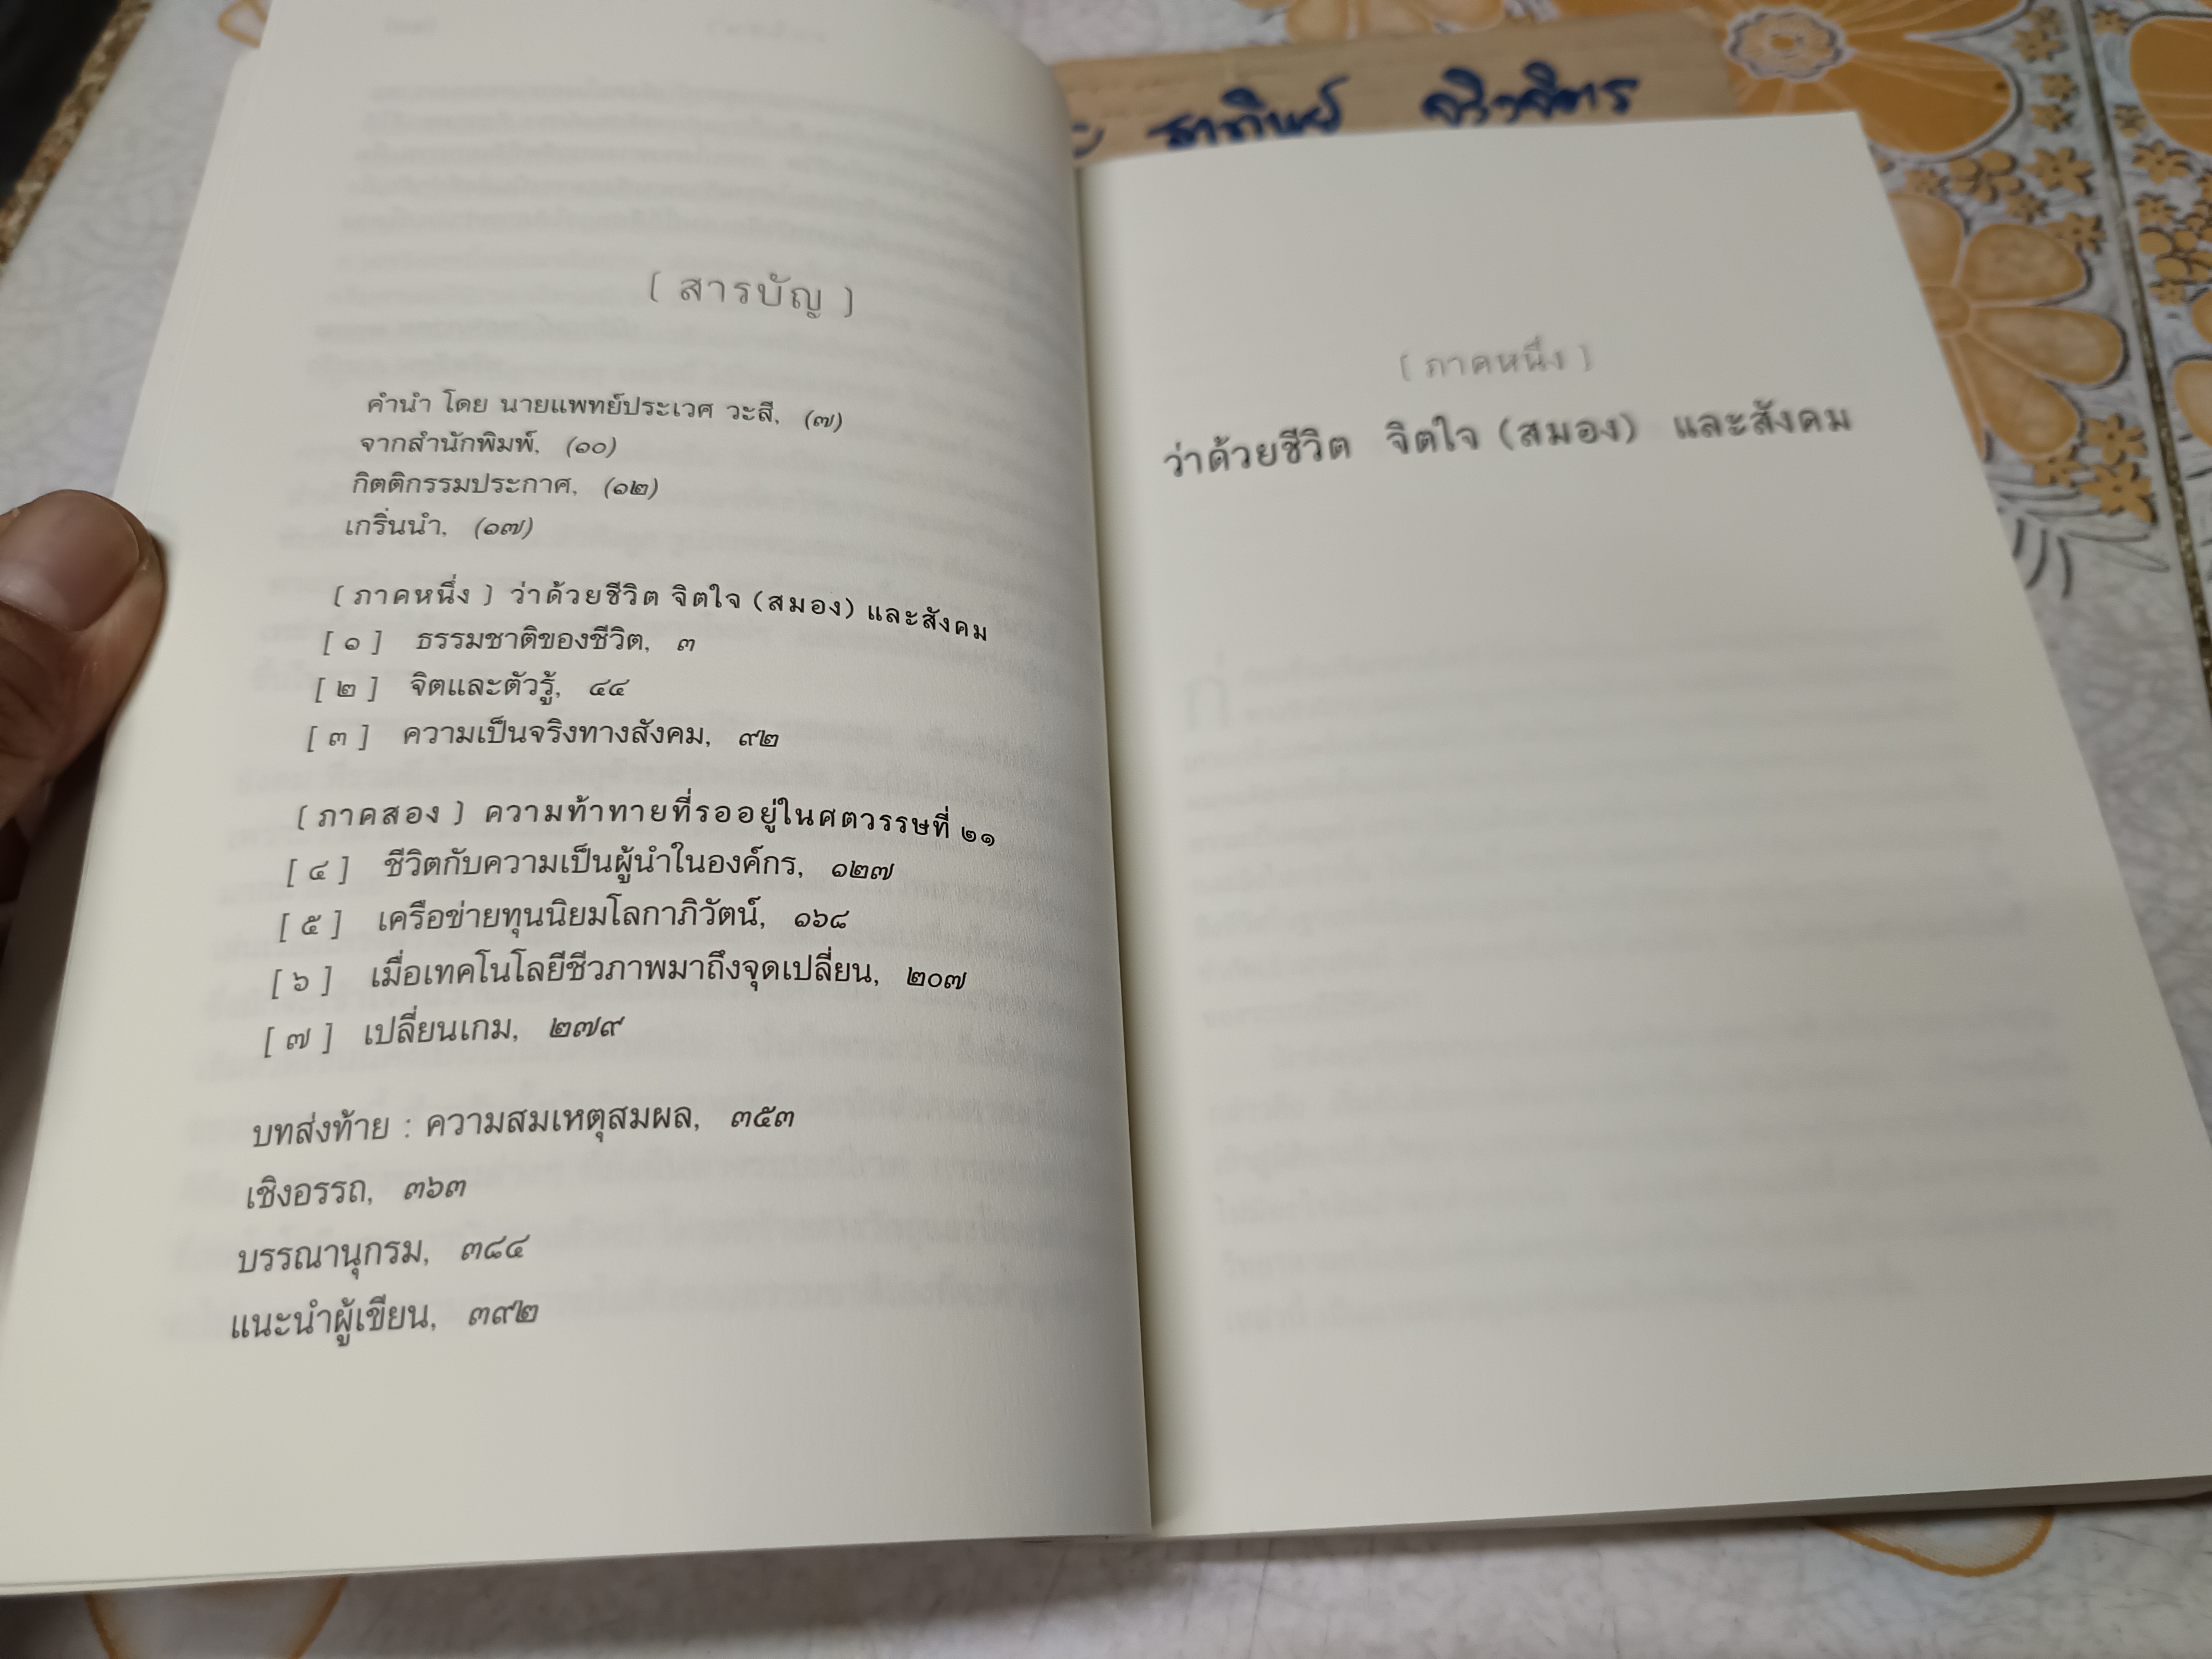 [ สารบัญ ]
คำนำ โดย นายแพทย์ประเวศ วะสี, (๗)
จากสำนักพิมพ์, (๑๐)
กิตติกรรมประกาศ, (๑๒)
เกริ่นนำ, (๑๗)
[ ภาคหนึ่ง ] ว่าด้วยชีวิต จิตใจ (สมอง) และสังคม
[ ๑ ] ธรรมชาติของชีวิต, ๓
[ ๒ ] จิตและตัวรู้, ๔๔
[ ๓ ] ความเป็นจริงทางสังคม, ๙๒
[ ภาคสอง ] ความท้าทายที่รออยู่ในศตวรรษที่ ๒๑
[ ๔ ] ชีวิตกับความเป็นผู้นำในองค์กร, ๑๒๗
[ ๕ ] เครือข่ายทุนนิยมโลกาภิวัตน์, ๑๖๘
[ ๖ ] เมื่อเทคโนโลยีชีวภาพมาถึงจุดเปลี่ยน, ๒๐๗
[ ๗ ] เปลี่ยนเกม, ๒๗๙
บทส่งท้าย : ความสมเหตุสมผล, ๓๕๓
เชิงอรรถ, ๓๖๓
บรรณานุกรม, ๓๘๔
แนะนำผู้เขียน, ๓๙๒
[ ภาคหนึ่ง ]
ว่าด้วยชีวิต จิตใจ (สมอง) และสังคม